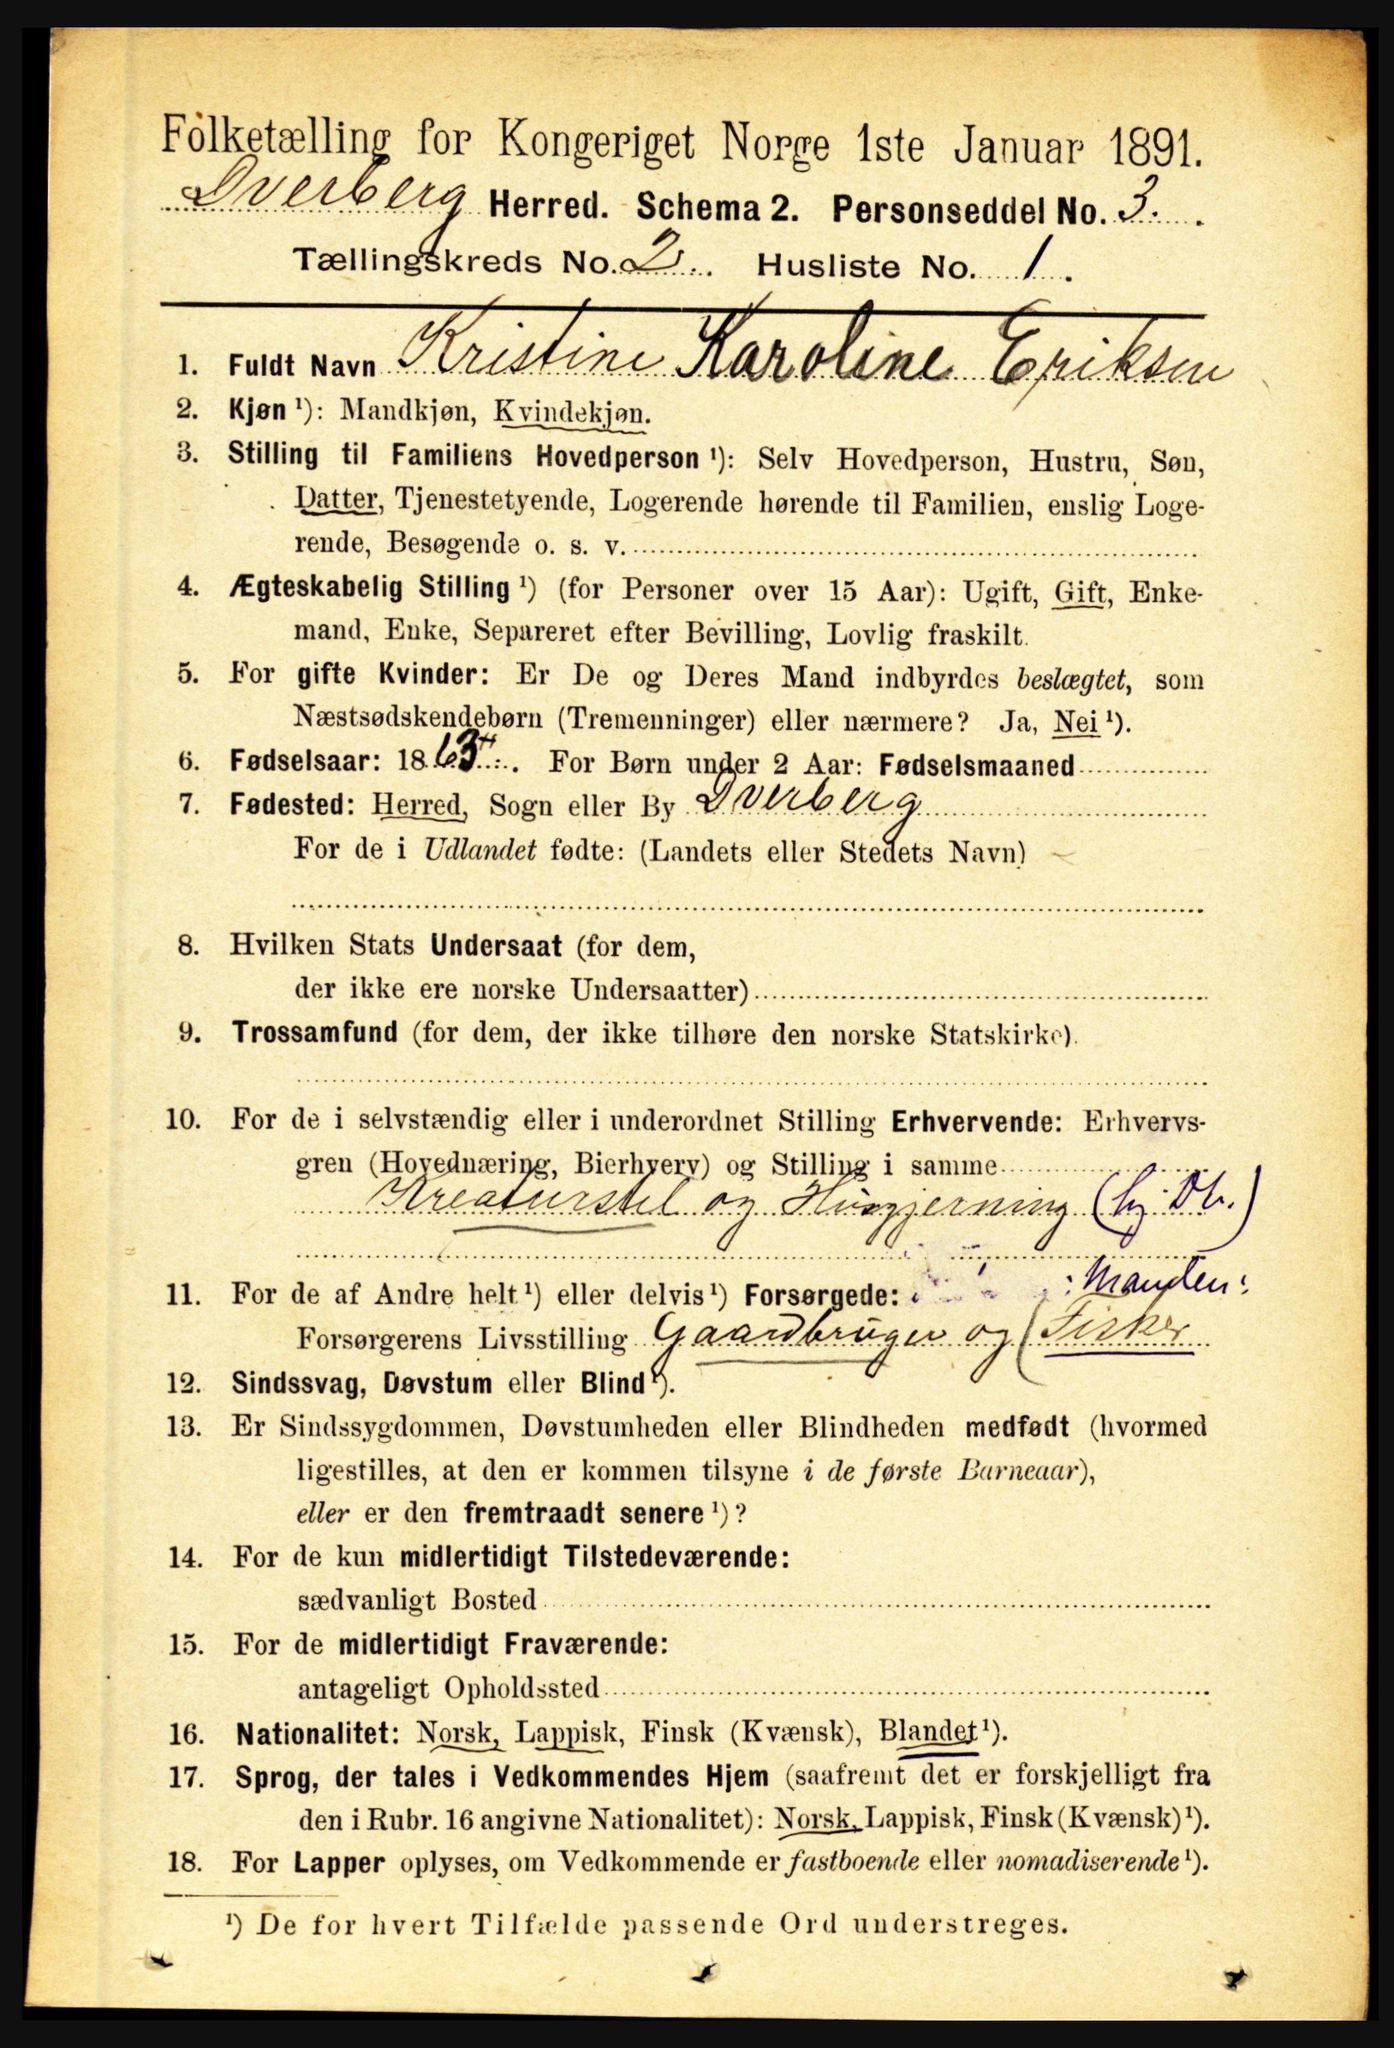 Folketælling for Kongeriget Norge 1ste Januar 1891.
Dverberg Herred. Schema 2. Personseddel No. 3.
Tællingskreds No. 2. Husliste No. 1.
1. Fuldt Navn Kristine Karoline Eriksen
2. Kjøn ¹): Mandkjøn, Kvindekjøn.
3. Stilling til Familiens Hovedperson ¹): Selv Hovedperson, Hustru, Søn,
Datter, Tjenestetyende, Logerende hørende til Familien, enslig Loge-
rende, Besøgende o. s. v.
4. Ægteskabelig Stilling ¹) (for Personer over 15 Aar): Ugift, Gift, Enke-
mand, Enke, Separeret efter Bevilling, Lovlig fraskilt.
5. For gifte Kvinder: Er De og Deres Mand indbyrdes beslægtet, som
Næstsødskendebørn (Tremenninger) eller nærmere? Ja, Nei ¹).
6. Fødselsaar: 1863. For Børn under 2 Aar: Fødselsmaaned
7. Fødested: Herred, Sogn eller By Dverberg
For de i Udlandet fødte: (Landets eller Stedets Navn)
8. Hvilken Stats Undersaat (for dem,
der ikke ere norske Undersaatter)
9. Trossamfund (for dem, der ikke tilhøre den norske Statskirke).
10. For de i selvstændig eller i underordnet Stilling Erhvervende: Erhvervs-
gren (Hovednæring, Bierhverv) og Stilling i samme
Kreaturstel og Husgjerning (hj. Dtr.)
11. For de af Andre helt ¹) eller delvis ¹) Forsørgede: : Manden :
Forsørgerens Livsstilling Gaardbruger og (Fisker
12. Sindssvag, Døvstum eller Blind ¹).
13. Er Sindssygdommen, Døvstumheden eller Blindheden medfødt (hvormed
ligestilles, at den er kommen tilsyne i de første Barneaar),
eller er den fremtraadt senere ¹)?
14. For de kun midlertidigt Tilstedeværende:
sædvanligt Bosted
15. For de midlertidigt Fraværende:
antageligt Opholdssted
16. Nationalitet: Norsk, Lappisk, Finsk (Kvænsk), Blandet ¹).
17. Sprog, der tales i Vedkommendes Hjem (saafremt det er forskjelligt fra
den i Rubr. 16 angivne Nationalitet): Norsk, Lappisk, Finsk (Kvænsk) ¹).
18. For Lapper oplyses, om Vedkommende er fastboende eller nomadiserende ¹).
¹) De for hvert Tilfælde passende Ord understreges.